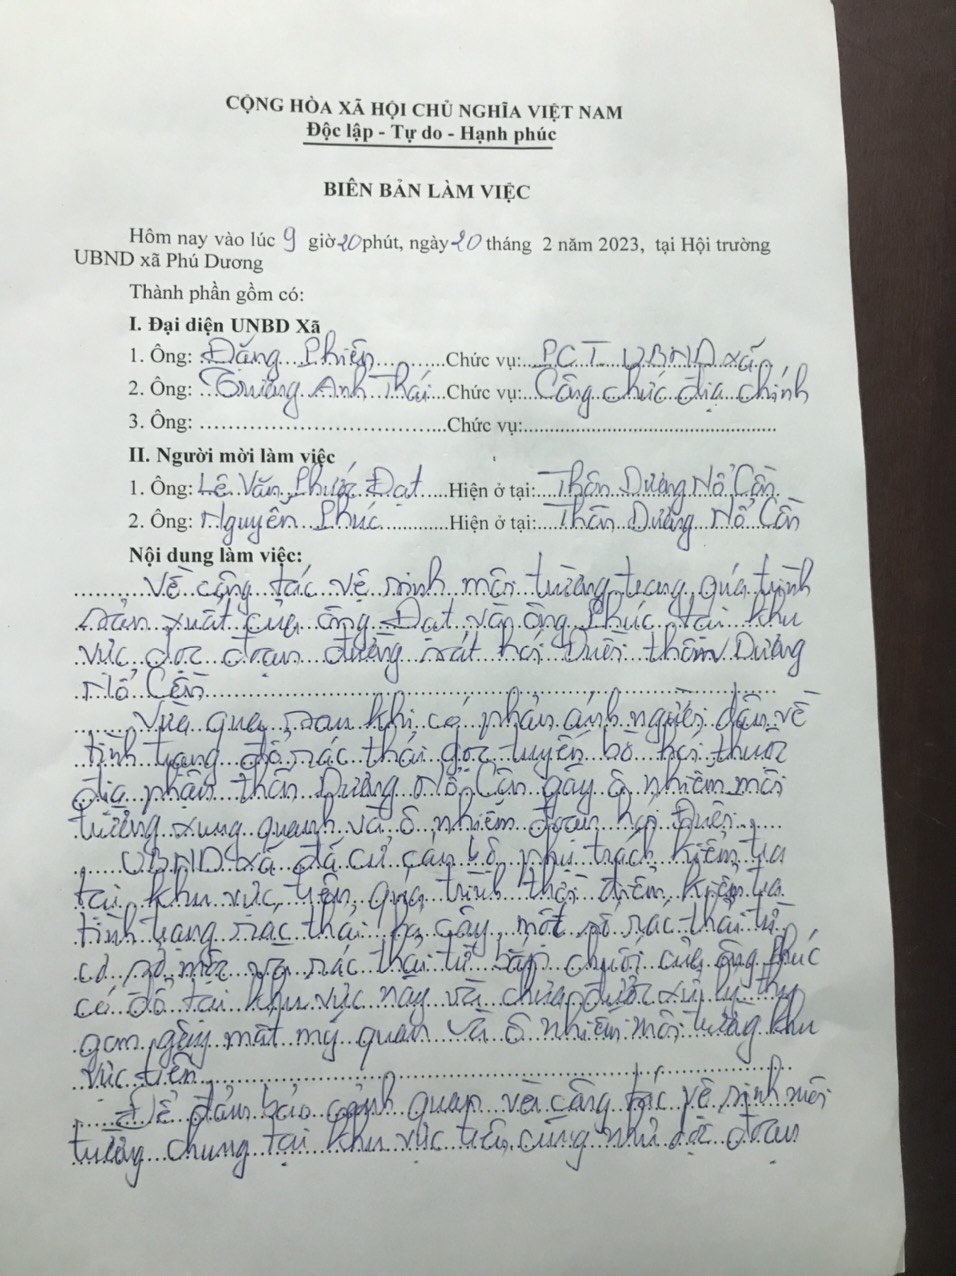 CỘNG HÒA XÃ HỘI CHỦ NGHĨA VIỆT NAM
Độc lập - Tự do - Hạnh phúc
BIÊN BẢN LÀM VIỆC
Hôm nay vào lúc 9 giờ 20 phút, ngày 20 tháng 2 năm 2023, tại Hội trường
UBND xã Phú Dương
Thành phần gồm có:
I. Đại diện UNBD Xã
1. Ông: Đặng Phiên Chức vụ: PCT UBND xã
2. Ông: Trương Anh Thái Chức vụ: Công chức địa chính
3. Ông: Chức vụ:
II. Người mời làm việc
1. Ông: Lê Văn Phước Đạt Hiện ở tại: Thôn Dương Nổ Cồn
2. Ông: Nguyễn Phúc Hiện ở tại: Thôn Dương Nổ Cồn
Nội dung làm việc:
Về công tác vệ sinh môi trường trong quá trình
sản xuất của ông Đạt và ông Phúc tại khu
vực dọc đoạn đường sát hói Đuồi thôn Dương
Nổ Cồn
Vừa qua, sau khi có phản ánh người dân về
tình trạng đổ rác thải dọc tuyến bờ hói thuộc
địa phận thôn Dương Nổ Cồn gây ô nhiễm môi
trường xung quanh và ô nhiễm đoạn hói
UBND xã đã cử cán bộ phụ trách kiểm tra
tại khu vực trên, qua trình thời điểm kiểm tra
tình trạng rác thải một số rác thải từ
cơ sở mộc và rác thải từ bắp chuối của ông Phúc
có đổ tại khu vực này và chưa được xử lý thu
gom, gây mất mỹ quan và ô nhiễm môi trường khu
vực trên
Để đảm bảo cảnh quan và công tác vệ sinh môi
trường chung tại khu vực trên cũng như dọc đoạn